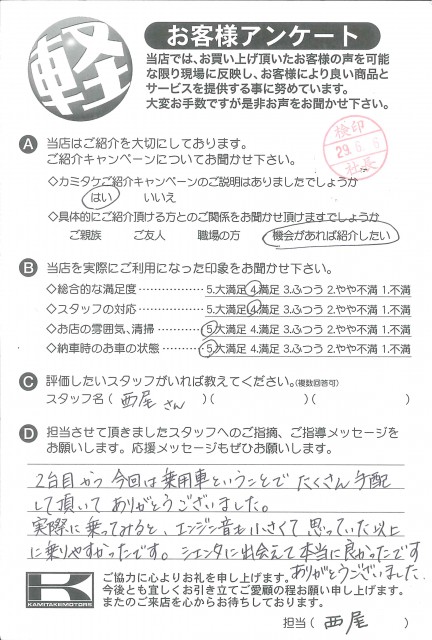 軽
お客様アンケート
当店では、お買い上げ頂いたお客様の声を可能
な限り現場に反映し、お客様により良い商品と
サービスを提供する事に努めています。
大変お手数ですが是非お声をお聞かせ下さい。
検印
29.6.6
社長
A 当店はご紹介を大切にしております。
ご紹介キャンペーンについてお聞かせ下さい。
◇カミタケご紹介キャンペーンのご説明はありましたでしょうか
はい いいえ
◇具体的にご紹介頂ける方とのご関係をお聞かせ頂けますでしょうか
ご親族 ご友人 職場の方 機会があれば紹介したい
B 当店を実際にご利用になった印象をお聞かせ下さい。
◇総合的な満足度……………5.大満足 4.満足 3.ふつう 2.やや不満 1.不満
◇スタッフの対応……………5.大満足 4.満足 3.ふつう 2.やや不満 1.不満
◇お店の雰囲気、清掃………5.大満足 4.満足 3.ふつう 2.やや不満 1.不満
◇納車時のお車の状態………5.大満足 4.満足 3.ふつう 2.やや不満 1.不満
C 評価したいスタッフがいれば教えてください。(複数回答可)
スタッフ名( 西尾さん )( )( )
D 担当させて頂きましたスタッフへのご指摘、ご指導メッセージを
お願いします。応援メッセージもぜひお願いします。
2台目から今回は乗用車ということでたくさん手配
して頂いてありがとうございました。
実際に乗ってみると、エンジン音も小さくて思っていた以上
に乗りやすかったです。シエンタに出会えて本当に良かったです
ありがとうございました.
K
KAMITAKEMOTORS
ご協力に心よりお礼を申し上げます。
今後とも宜しくお引き立てご愛顧の程お願い申し上げます。
またのご来店を心からお待ちしております。
担当( 西尾 )